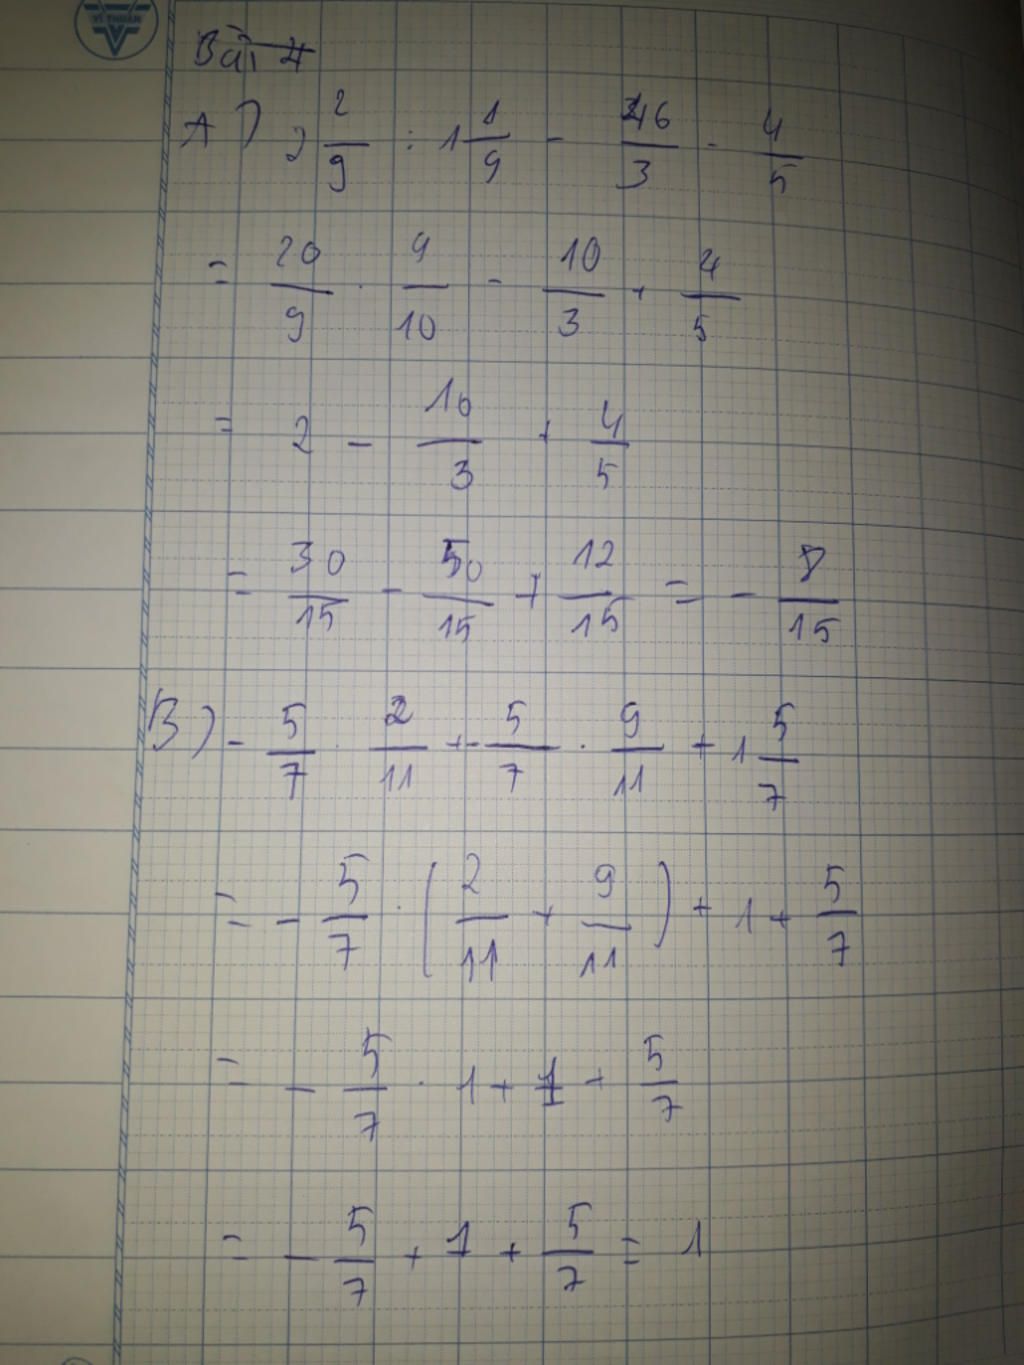 VĨ THUÂN
Bài 4
A) 2 2/9 : 1 1/9 - 46/3 · 4/5
= 20/9 · 9/10 - 10/3 + 4/5
= 2 - 10/3 + 4/5
= 30/15 - 50/15 + 12/15 = - 8/15
B) - 5/7 · 2/11 + - 5/7 · 9/11 + 1 5/7
= - 5/7 · ( 2/11 + 9/11 ) + 1 + 5/7
= - 5/7 · 1 + 1 + 5/7
= - 5/7 + 1 + 5/7 = 1